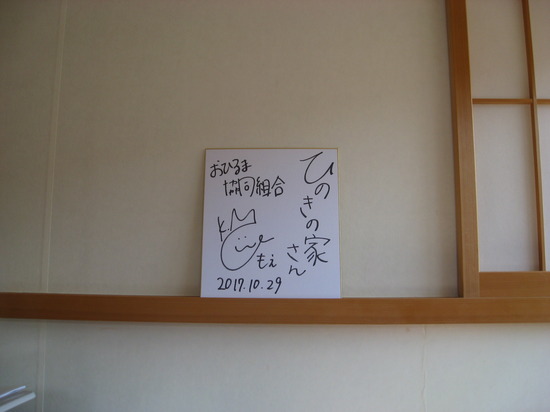 ひのきの家
さん
おひるま
協同組合
もえ
2017.10.29